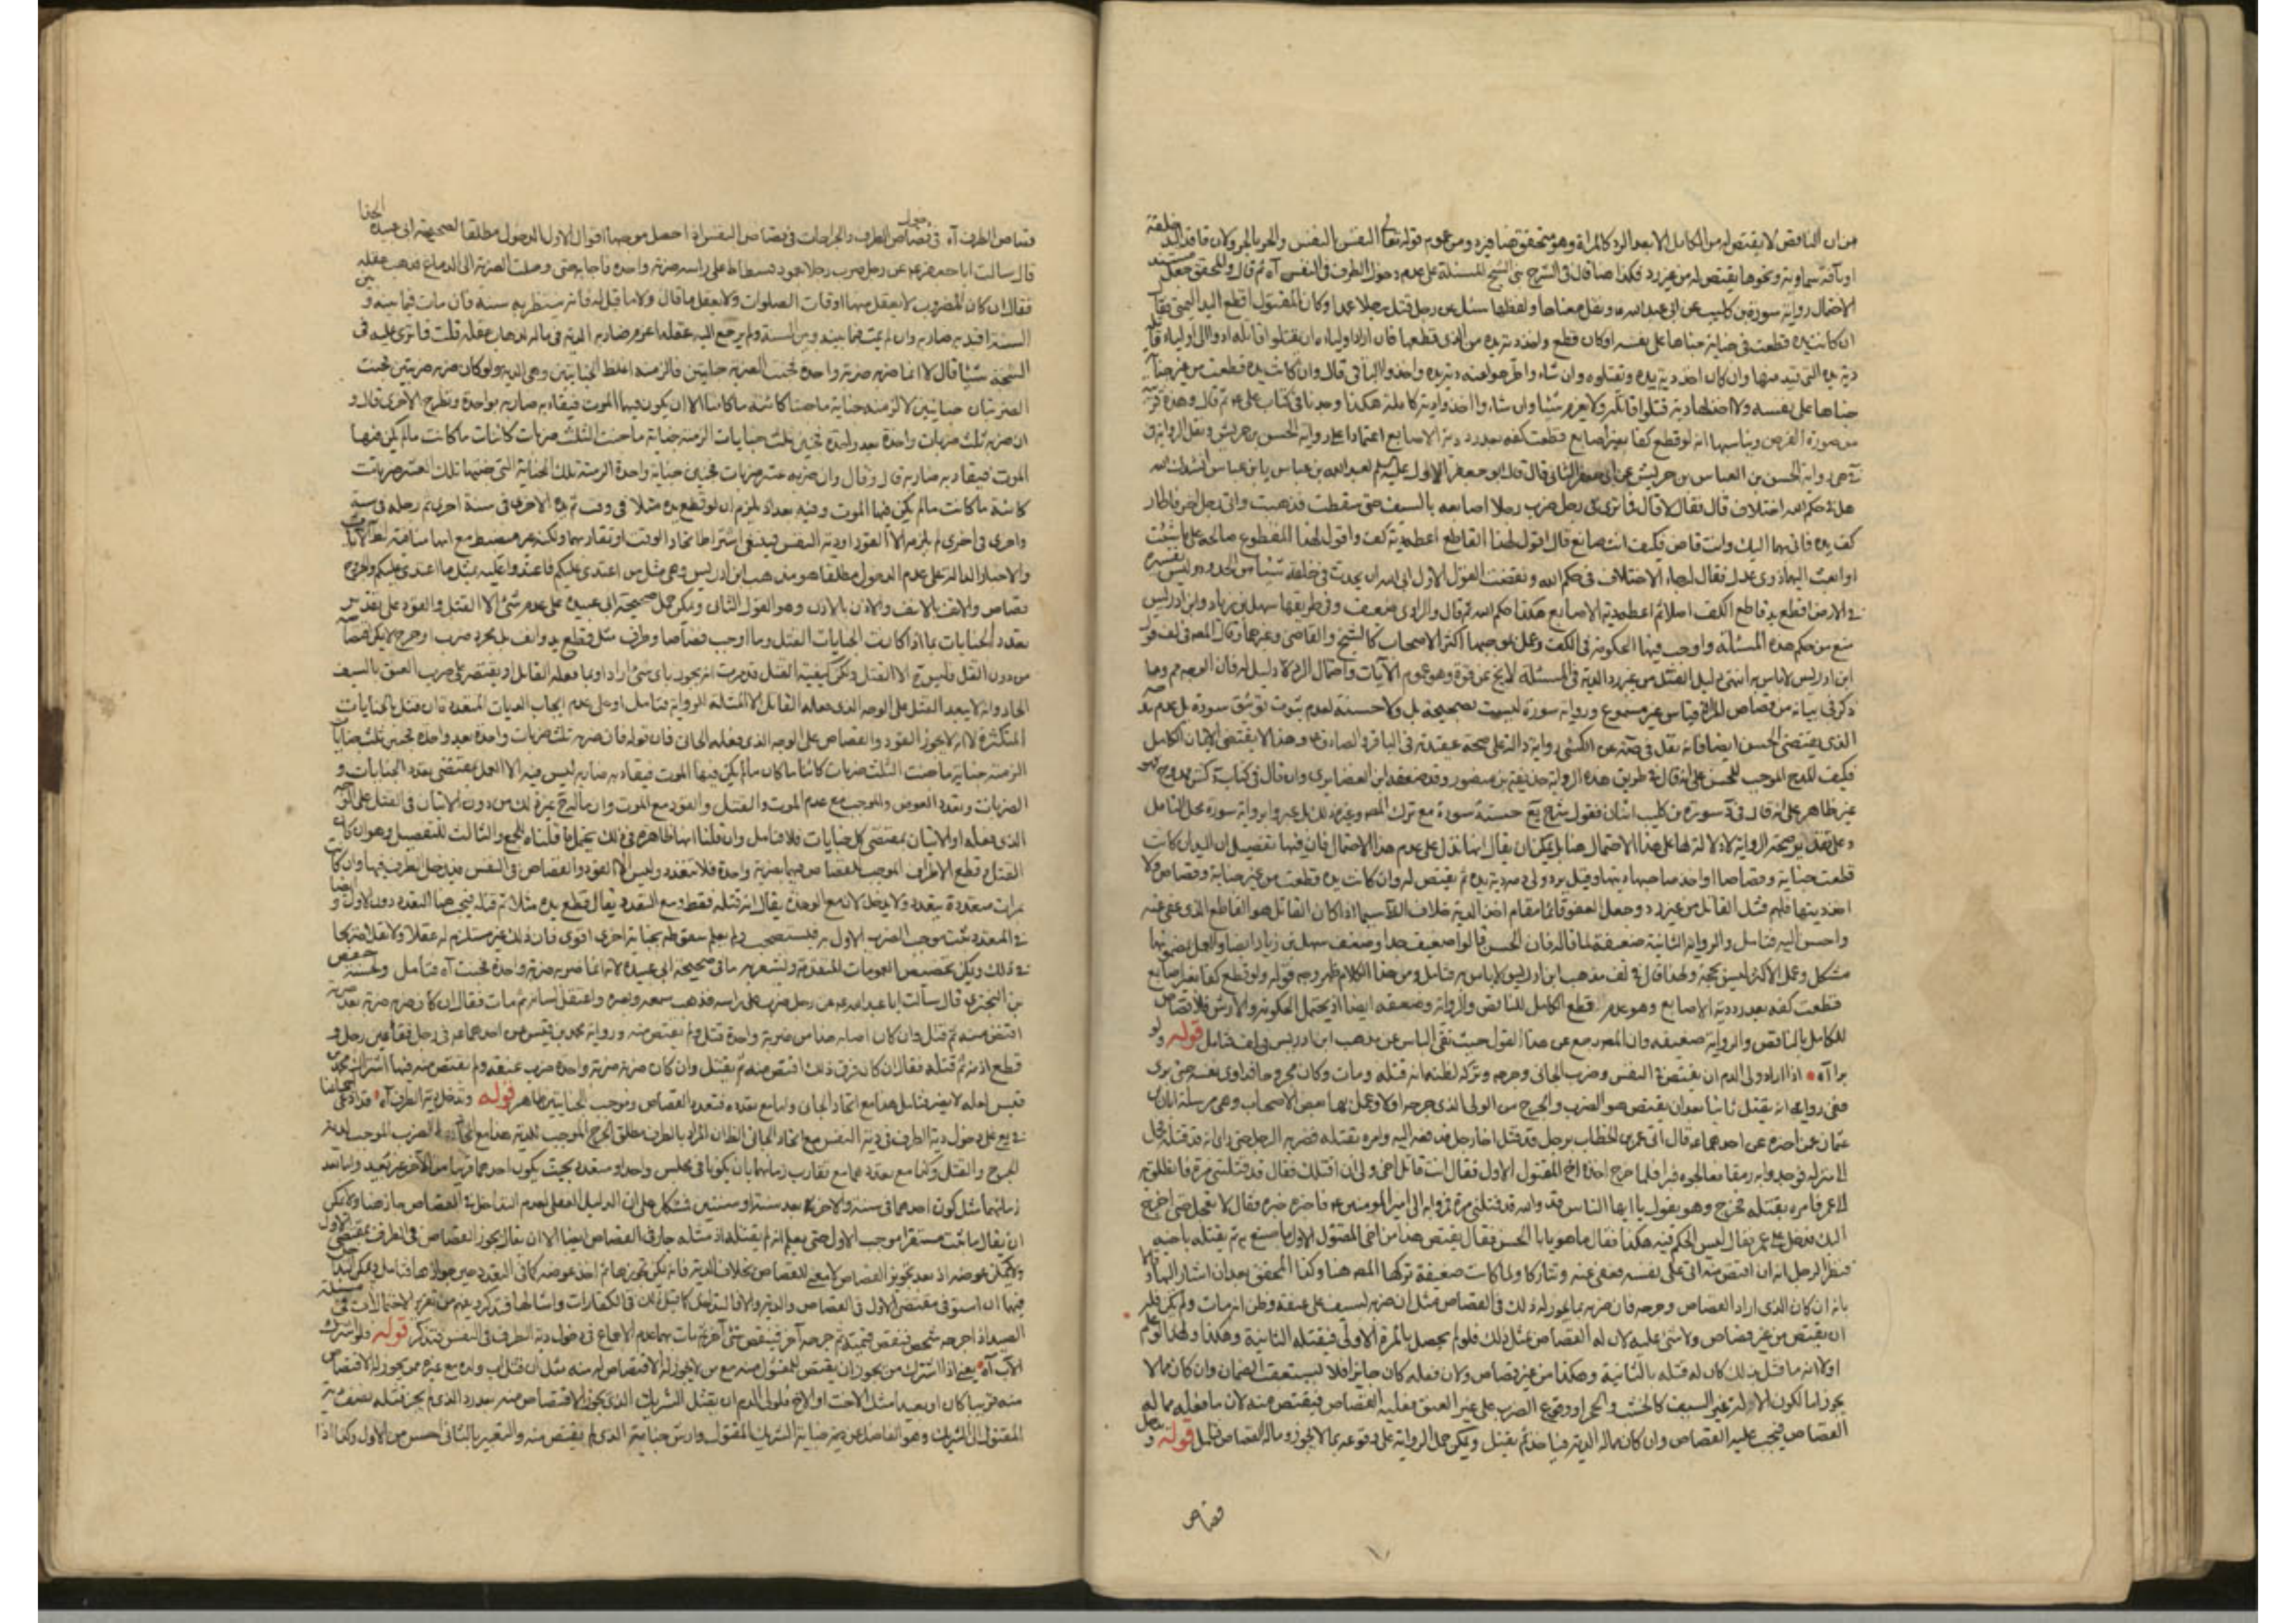 من ان الناقص لا يقتص له من الكامل الا بعد الرد كالمراة وهو متحقق هنا فيرد ومن عموم قوله تعالى النفس بالنفس والحر بالحر وكان فاقد اليد خلقة
او بآفة سماوية ونحوها يقتص له من غير رد فكذا هنا قال في الشرح بنى الشيخ المسئلة على عدم دخول الطرف في النفس آه ثم قال والمحقق جعل مستند
الاحتمال رواية سورة بن كليب عن ابى عبد الله ونقل معناها ولفظها سئل عن رجل قتل رجلا عمدا وكان المقتول اقطع اليد اليمنى فقال
ان كانت يده قطعت في جناية جناها على نفسه او كان قطع واخذ دية يده من الذى قطعها فان اراد اولياءه ان يقتلوا قاتله ادوا الى اولياء قاتله
دية يده التى قيد منها وان كان اخذ دية يده ويقتلوه وان شاءوا طرحوا عنه دية يده واخذوا الباقى قال وان كانت يده قطعت من غير جناية
جناها على نفسه ولا اخذ لها دية قتلوا قاتله ولا يغرم شيئا وان شاءوا اخذوا دية كاملة هكذا وجدنا في كتاب على ثم قال وهذه قريبة
من صورة الفرض ويناسبها انه لو قطع كفا بغير اصابع قطعت كفه بعد رد دية الاصابع اعتمادا على رواية الحسن بن حريش ونقل الرواية
رواية الحسن بن العباس بن حريش عن ابى جعفر الثانى قال قال ابو جعفر الاول عليه السلم لعبد الله بن عباس يا بن عباس انشدك الله
هل في حكم الله اختلاف قال فقال لا قال فما ترى في رجل ضرب رجلا اصابعه بالسيف حتى سقطت فذهبت واتى رجل اخر فاطار
كف يده فاتى بهما اليك وانت قاض فكيف انت صانع قال اقول لهذا القاطع اعطه دية كف واقول لهذا المقطوع صالحه على ما شئت
او ابعث اليهما ذوى عدل فقال له جاء الاختلاف في حكم الله ونقضت القول الاول ابى الله ان يحدث في خلقه شيئا من الحدود وليس تفسيره
في الارض اقطع يد قاطع الكف اصلا ثم اعطه دية الاصابع هكذا حكم الله ثم قال والراوى ضعيف وفي طريقها سهل بن زياد وابن ادريس
منع من حكم هذه المسئلة واوجب فيها الحكومة في الكف وعمل بموجبها اكثر الاصحاب كالشيخ والقاضى وغيرهما وقال المص في لف قول
ابن ادريس لا باس به انتهى دليل القتل من غير رد الدية في المسئلة لا يخ عن قوة وهو عموم الآيات واحتمال الرد لا دليل له فان الوجه وما
ذكر في بيانه من قصاص المراة قياس غير مسموع ورواية سورة ليست بصحيحة بل ولا حسنة لعدم ثبوت توثيق سورة بل عدم مدحه
الذى يقتضى الحسن ايضا فانه نقل في عن الكشى رواية دالة على صحة عقيدته في الباقر والصادق وهذا لا يقتضى الايمان الكامل
فكيف المدح الموجب للحسن على انه قال في طريق هذه الرواية حذيفة بن منصور وقد ضعفه ابن الغضايرى وان قال في كتاب كش ممدوح فهو
غير ظاهر على انه قال في سورة بن كليب اثنان فقول شرح يع حسنة سورة مع ترك المص وغيره ذلك غير رواية سورة محل التامل
وعلى تقدير صحة الرواية لا دلالة لها على هذا الاحتمال هنا بل يمكن ان يقال انها تدل على عدم هذا الاحتمال فان فيها تفصيل ان اليد ان كانت
قطعت جناية وقصاصا او اخذ صاحبها ديتها وقتل يرد ولى دمه دية يده ثم يقتص له وان كانت يده قطعت من غير جناية وقصاص ولا
اخذ ديتها فلهم قتل القاتل من غير رد وجعل العفو قائما مقام اخذ الدية خلاف القاعدة سيما اذا كان القاتل هو القاطع الذى عفى عنه
واحسن اليه فتامل والرواية الثانية ضعيفة لما قاله فان الحسن قالوا ضعيف جدا وضعف سهل بن زياد ايضا والعمل بمضمونها
مشكل وعمل الاكثر ليس بحجة ولهذا قال في لف مذهب ابن ادريس لا باس به فتامل ومن هذا الكلام ظهر وجه قوله ولو قطع كفا بغير اصابع
قطعت كفه بعد رد دية الاصابع وهو عدم قطع الكامل للناقص والرواية وضعفه ايضا اذ يحتمل الحكومة والارش فلا قصاص
للكامل بالناقص والرواية ضعيفة وان المص رجع عن هذا القول حيث نفى الباس عن مذهب ابن ادريس في لف فتامل قوله ولو
برا آه اذا اراد ولى الدم ان يقتص في النفس وضرب الجانى وجرحه وتركه لظنه انه قتله ومات وكان مجروحا فداوى نفسه حتى برى
ففى رواية انه يقتل ثانيا بعد ان يقتص هو الضرب والجرح من الولى الذى جرحه اولا وعمل بها بعض الاصحاب وهى مرسلة ابان بن
عثمان عمن اخبره عن احدهما قال اتى عمر بن الخطاب برجل قد قتل اخا رجل فدفعه اليه وامره بقتله فضربه الرجل حتى راى انه قد قتله فحمل
الى منزله فوجدوا به رمقا فعالجوه فبرا فلما خرج اخذه اخ المقتول الاول فقال انت قاتل اخى ولى ان اقتلك فقال قد قتلتنى مرة فانطلق به
الى عمر فامره بقتله فخرج وهو يقول يا ايها الناس قد والله قتلنى مرة فمروا به الى امير المومنين فاخبره خبره فقال لا تعجل حتى اخرج
اليك فدخل على عمر فقال ليس الحكم فيه هكذا فقال ما هو يا ابا الحسن فقال يقتص هذا من اخى المقتول الاول ما صنع به ثم يقتله باخيه
فنظر الرجل انه ان اقتص منه اتى على نفسه فعفى عنه وتتاركا ولما كانت ضعيفة تركها المص هنا وكذا المحقق بعد ان اشار اليها وقالا
بانه ان كان الذى اراد القصاص وجرحه فان ضربه بما يجوز له ذلك في القصاص مثل ان ضربه بسيف على عنقه وظن انه مات ولم يكن فله
ان يقتص من غير قصاص ولا شئ عليه لان له القصاص بمثل ذلك فلو لم يحصل بالمرة الاولى فيقتله الثانية وهكذا ولهذا لو علم
اولا انه ما قتل بذلك كان له قتله بالثانية وهكذا من غير قصاص ولان فعله كان جايزا فلا يستعقب الضمان وان كان مما لا
يجوز اما لكون الالة غير السيف كالخشب والحجر او وقوع الضرب على غير العنق فعليه القصاص فيقتص منه لان ما فعله مما له
القصاص فيجب عليه القصاص وان كان مما له الدية فياخذ ثم يقتل ويمكن حمل الرواية على وقوعه بما لا يجوز وماله القصاص فتامل قوله ويدخل
قصاص
قصاص الطرف آه في دخول قصاص الطرف والجراحات في قصاص النفس اذا حصل موجبها اقوال الاول الدخول مطلقا لصحيحة ابى عبيدة الحذا
قال سالت ابا جعفر عن رجل ضرب رجلا بعمود فسطاط على راسه ضربة واحدة فاجافه حتى وصلت الضربة الى الدماغ فذهب عقله
فقال ان كان المضروب لا يعقل منها اوقات الصلوات ولا يعقل ما قال ولا ما قيل له فانه ينتظر به سنة فان مات فيما بينه وبين
السنة اقيد به ضاربه وان لم يمت فيما بينه وبين السنة ولم يرجع اليه عقله اغرم ضاربه الدية في ماله لذهاب عقله قلت فما ترى عليه في
الشجة شيئا قال لا انما ضربه ضربة واحدة فجنت الضربة جنايتين فالزمته اغلظ الجنايتين وهى الدية ولو كان ضربه ضربتين فجنت
الضربتان جنايتين لالزمته جناية ما جنتا كائنة ما كانتا الا ان يكون فيهما الموت فيقاد به ضاربه بواحدة وتطرح الاخرى قال و
ان ضربه ثلث ضربات واحدة بعد واحدة فجنين ثلث جنايات الزمته جناية ما جنت الثلث ضربات كائنات ما كانت ما لم يكن فيها
الموت فيقاد به ضاربه قال وقال وان ضربه عشر ضربات فجنين جناية واحدة الزمته تلك الجناية التى جنتها تلك العشر ضربات
كائنة ما كانت ما لم يكن فيها الموت وفيه بعد اذ يلزم ان لو قطع يده مثلا في وقت ثم يده الاخرى في سنة اخرى ثم رجله في سنة
واخرى في اخرى لم يلزمه الا القود او دية النفس فينبغى اشتراط اتحاد الوقت او تقاربهما ولكنه غير منضبط مع انها منافية لظ الآيات
والاخبار الدالة على عدم الدخول مطلقا هو مذهب ابن ادريس وهى مثل من اعتدى عليكم فاعتدوا عليه بمثل ما اعتدى عليكم والجروح
قصاص والانف بالانف والاذن بالاذن وهو القول الثانى ويمكن حمل صحيحة ابى عبيدة على عدم شئ الا القتل والقود على تقدير
تعدد الجنايات بما اذا كانت الجنايات القتل وما اوجب قصاصا وطرف مثل قطع يد وانف بل مجرد ضرب او جرح لا يمكن القصاص
من دون القتل فليس الا القتل ولكن كيفية القتل قد مرت انه يجوز باى شئ اراد او بما فعله القاتل او يقتصر على ضرب العنق بالسيف
الحاد وانه لا يبعد القتل على الوجه الذى فعله القاتل الا المثلة للرواية فتامل او على عدم ايجاب الديات المتعددة ان قتل بالجنايات
المتكثرة لا انه لا يجوز القود والقصاص على الوجه الذى فعله الجانى فان قوله فان ضربه ثلث ضربات واحدة بعد واحدة فجنين ثلث جنايات
الزمته جناية ما جنت الثلث ضربات كائنا ما كان ما لم يكن فيها الموت فيقاد به ضاربه ليس فيه الا العمل بمقتضى تعدد الجنايات و
الضربات وتعدد العوض والموجب مع عدم الموت والقتل والقود مع الموت وان ما لم يخرج بمزة لك من دون الاتيان في القتل على الوجه
الذى فعله او الاتيان بمقتضى كل جنايات فلا فتامل وان قلنا انها ظاهرة في ذلك يحمل ما قلناه للجمع والثالث التفصيل وهو ان كان
القتل وقطع الاطراف الموجب للقصاص فيهما بضربة واحدة فلا يتعدد وليس الا القود والقصاص في النفس فيدخل الطرف فيها وان كانت
بمرات متعددة يتعدد ولا يدخل لان مع الوحدة يقال انه قتله فقط ومع التعدد يقال قطع يده مثلا ثم قتله فيجئ هنا التعدد دون الاول وايضا
في المتعدد ثبت موجب الضرب الاول به فيستصحب ولم يعلم سقوطه بجناية اخرى اقوى فان ذلك غير مستلزم له عقلا ولا نقلا صريحا
في ذلك ويمكن تخصيص العمومات المتقدمة ويشعر به ما في صحيحة ابى عبيدة لانه انما ضربه ضربة واحدة فجنت آه فتامل ولحسنة حفص
بن البخترى قال سالت ابا عبد الله عن رجل ضرب على راسه فذهب سمعه وبصره واعتقل لسانه ثم مات فقال ان كان ضربه ضربة بعد ضربة
اقتص منه ثم قتل وان كان اصابه هذا من ضربة واحدة قتل ولم يقتص منه ورواية محمد بن قيس عن احدهما في رجل فقا عين رجل و
قطع اذنه ثم قتله فقال ان كان فرق ذلك اقتص منه ثم يقتل وان كان ضربه ضربة واحدة ضرب عنقه ولم يقتص منه فيها اشتراك محمد بن
قيس لعله لا يضر فتامل هذا مع اتحاد الجانى واما مع تعدده فتعدد القصاص وموجب الجنايتين ظاهر قوله وتدخل دية الطرف آه قد ادعى اجماعنا
في يع على دخول دية الطرف في دية النفس مع اتحاد الجانى الظ ان المراد بالطرف مطلق الجرح الموجب للدية هنا مع الضرب الموجب لدية
الجرح والقتل وكذا مع تعددهما مع تقارب زمانهما بان يكونا في مجلس واحد او متعدد بحيث يكون احدهما قريبا من الآخر غير بعيد واما بعد
زمانهما مثل كون احدهما في سنة والاخرى بعد سنة او سنتين فشكل على ان الدليل العقلى لعدم التداخل في القصاص جار هنا ولا يمكن
ان يقال ما ثبت مستقرا موجب الاول حتى يعلم انه لم يقتله اذ مثله جار في القصاص ايضا الا ان يقال يجوز القصاص في الطرف بمقتضى الاول
ولا يمكن عوضه اذ بعد تجويز القصاص لا معنى للقصاص بخلاف الدية فانه يمكن تجويزها ثم اخذ عوضه كما في التعدد حين جوازها فتامل ويمكن ايضا
فيها ان استوفى مقتضى الاول في القصاص والدية والا فالتداخل كما قيل ذلك في الكفارات وامثالها قد ذكره بعضهم تحرير الاحتمالات في مسئلة
الصيد اذا جرحه شخص فنقص قيمته ثم جرحه آخر فينقص شئ آخر ثم مات بهما عدم الاجماع في دخول دية الطرف في النفس فتذكر قوله فلو اشترك
الاب آه يعنى اذا اشترك من يجوز ان يقتص للمقتول منه مع من لا يجوز له الاقتصاص له منه مثل ان قتل اب ولده مع غيره ممن يجوز له الاقتصاص
منه قريبا كان او بعيدا مثل الاخت او الاخ فلولى الدم ان يقتل الشريك الذى يجوز الاقتصاص منه بعد رد الذى لم يجز قتله نصف دية
المقتول الى الشريك وهو الفاضل عن دية جناية الشريك المقتول وارش جنايته الذى لم يقتص منه والتعبير بالثانى احسن من الاول وكذا اذا